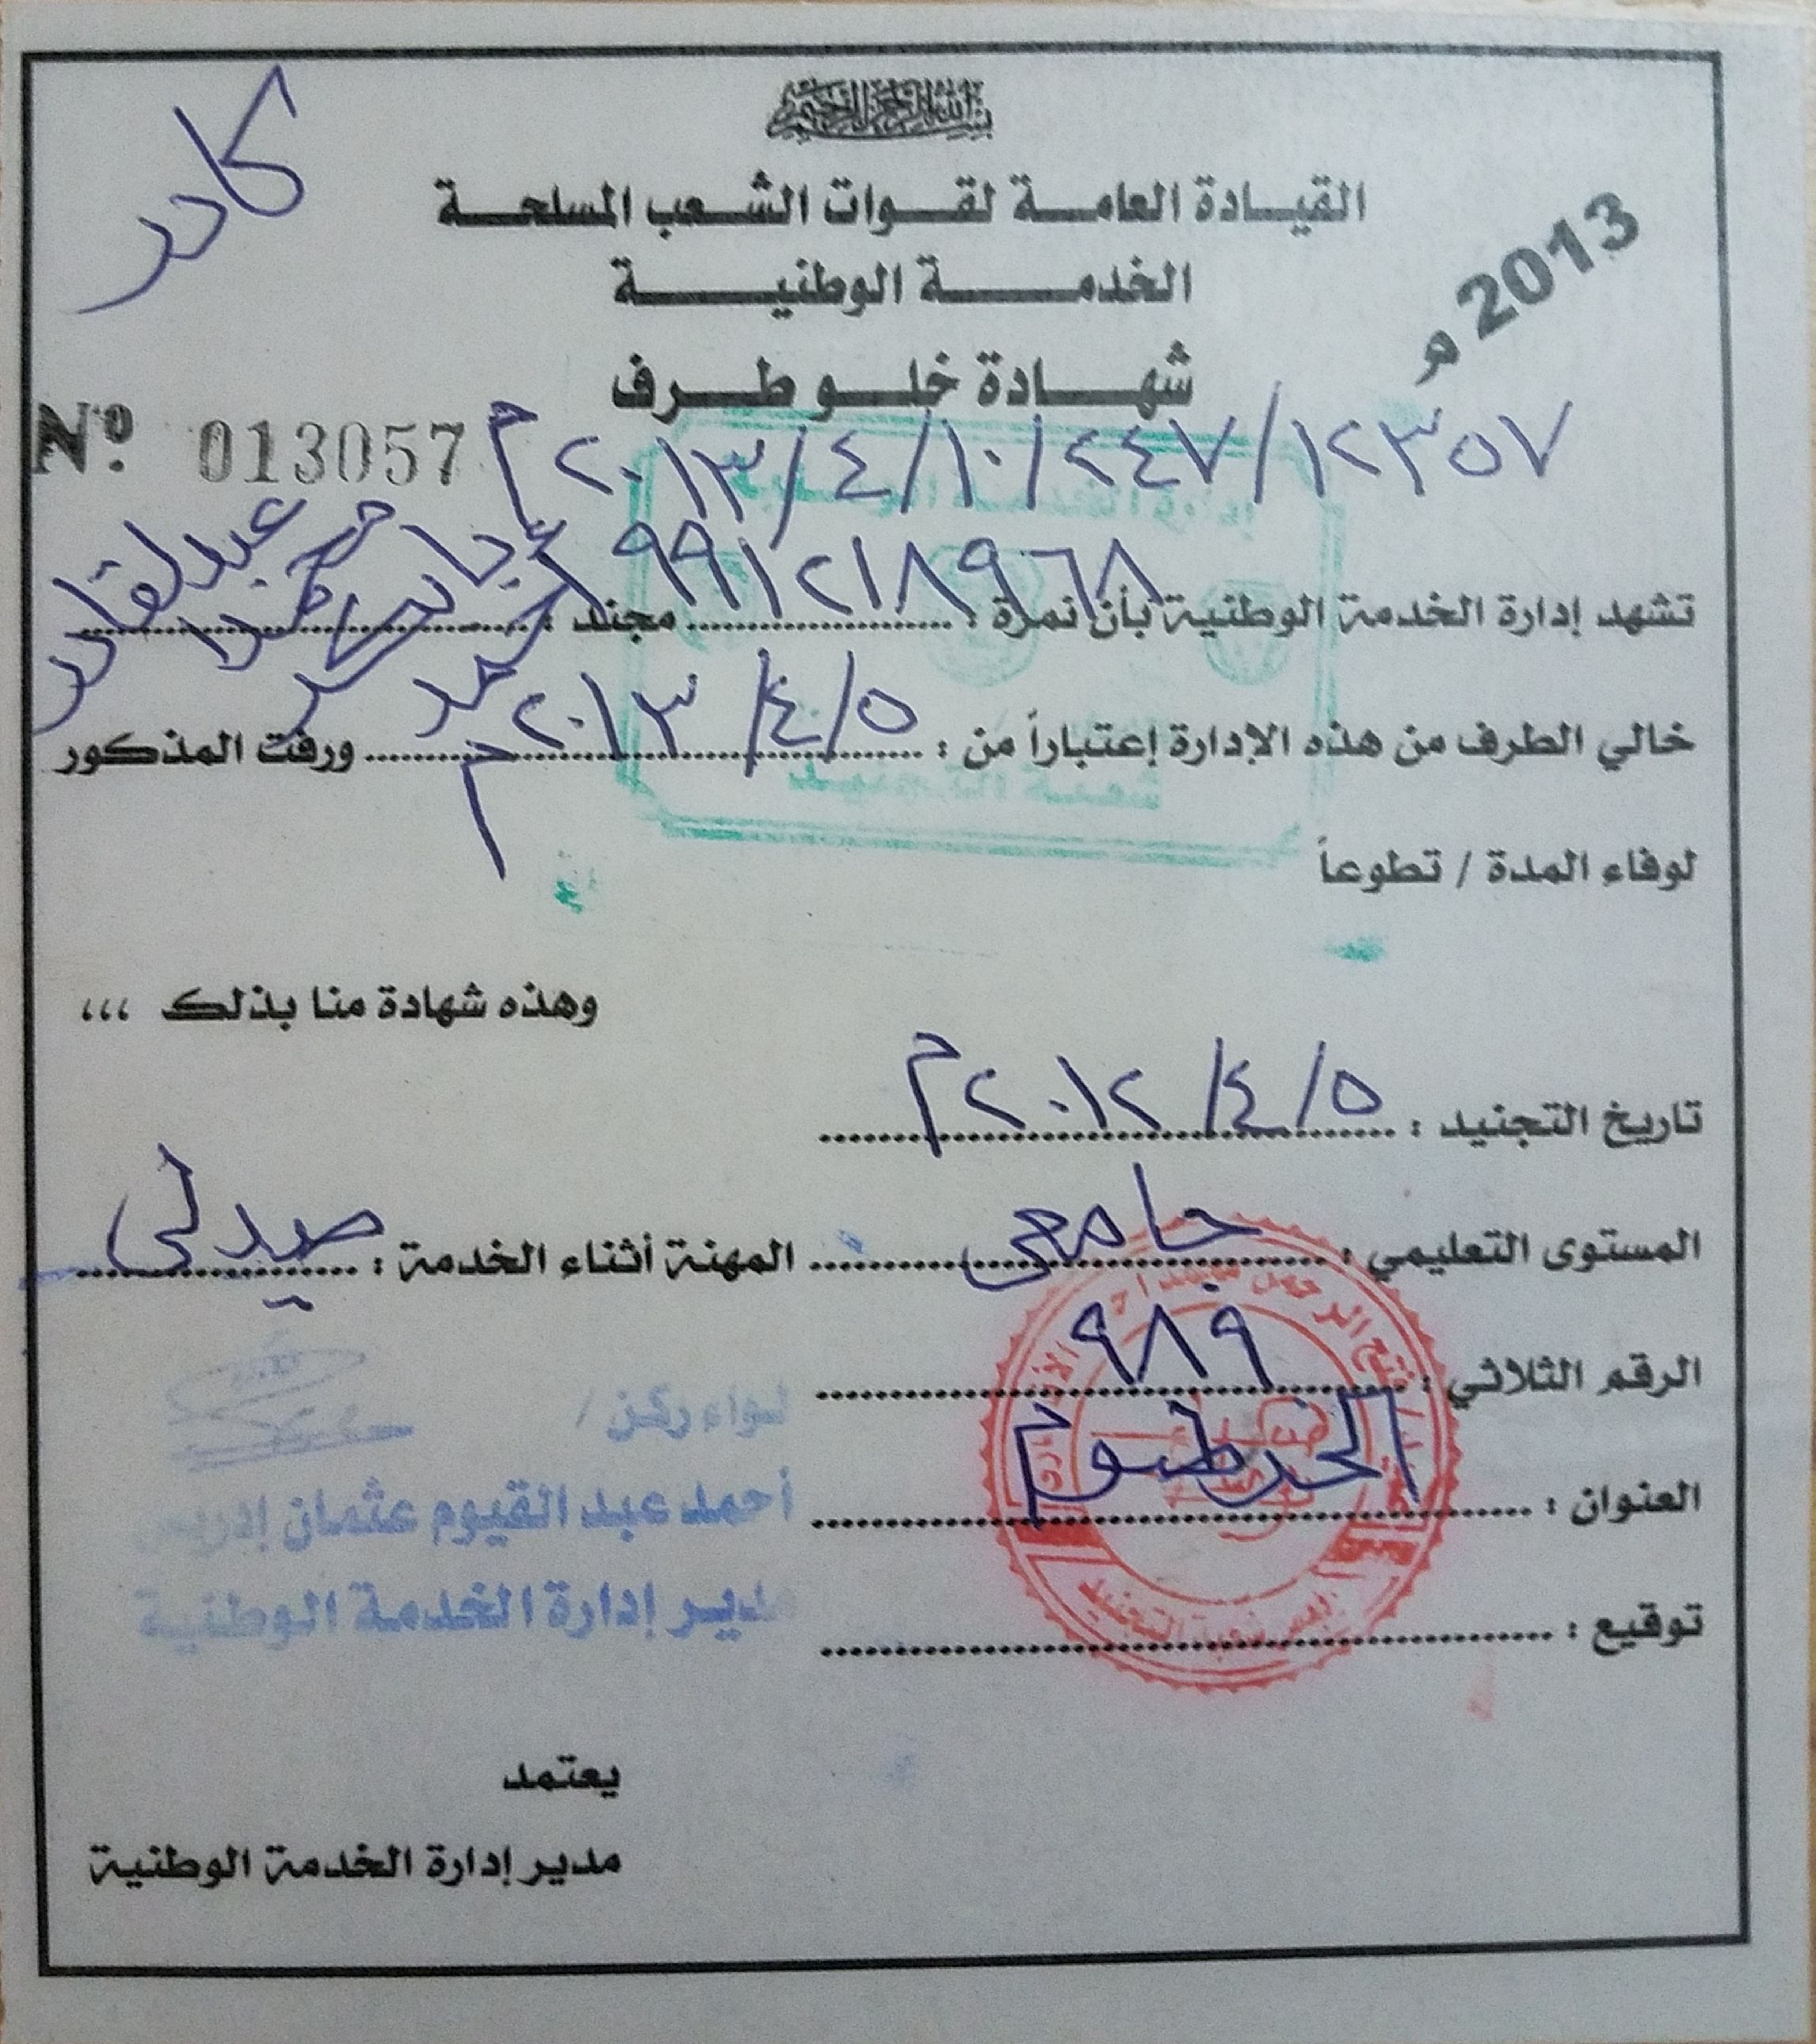 بسم الله الرحمن الرحيم
كادر
القيادة العامة لقوات الشعب المسلحة
الخدمة الوطنية
2013 م
شهادة خلو طرف
Nº 013057
١٢٣٥٧/٢٤٧/١٠/٤/٢٠١٣م
تشهد إدارة الخدمة الوطنية بأن نمرة : ٩٩١٢١٨٩٦٨ مجند :
عبدلقادر
خالي الطرف من هذه الإدارة إعتباراً من : ٥/٤/٢٠١٣م ورفت المذكور
لوفاء المدة / تطوعاً
وهذه شهادة منا بذلك ،،،
تاريخ التجنيد : ٥/٤/٢٠١٢م
المستوى التعليمي : جامعي المهنة أثناء الخدمة : صيدلي
الرقم الثلاثي : ٩٨٩
لواء ركن /
العنوان : الخرطوم
أحمد عبد القيوم عثمان إدريس
مدير إدارة الخدمة الوطنية
توقيع :
يعتمد
مدير إدارة الخدمة الوطنية